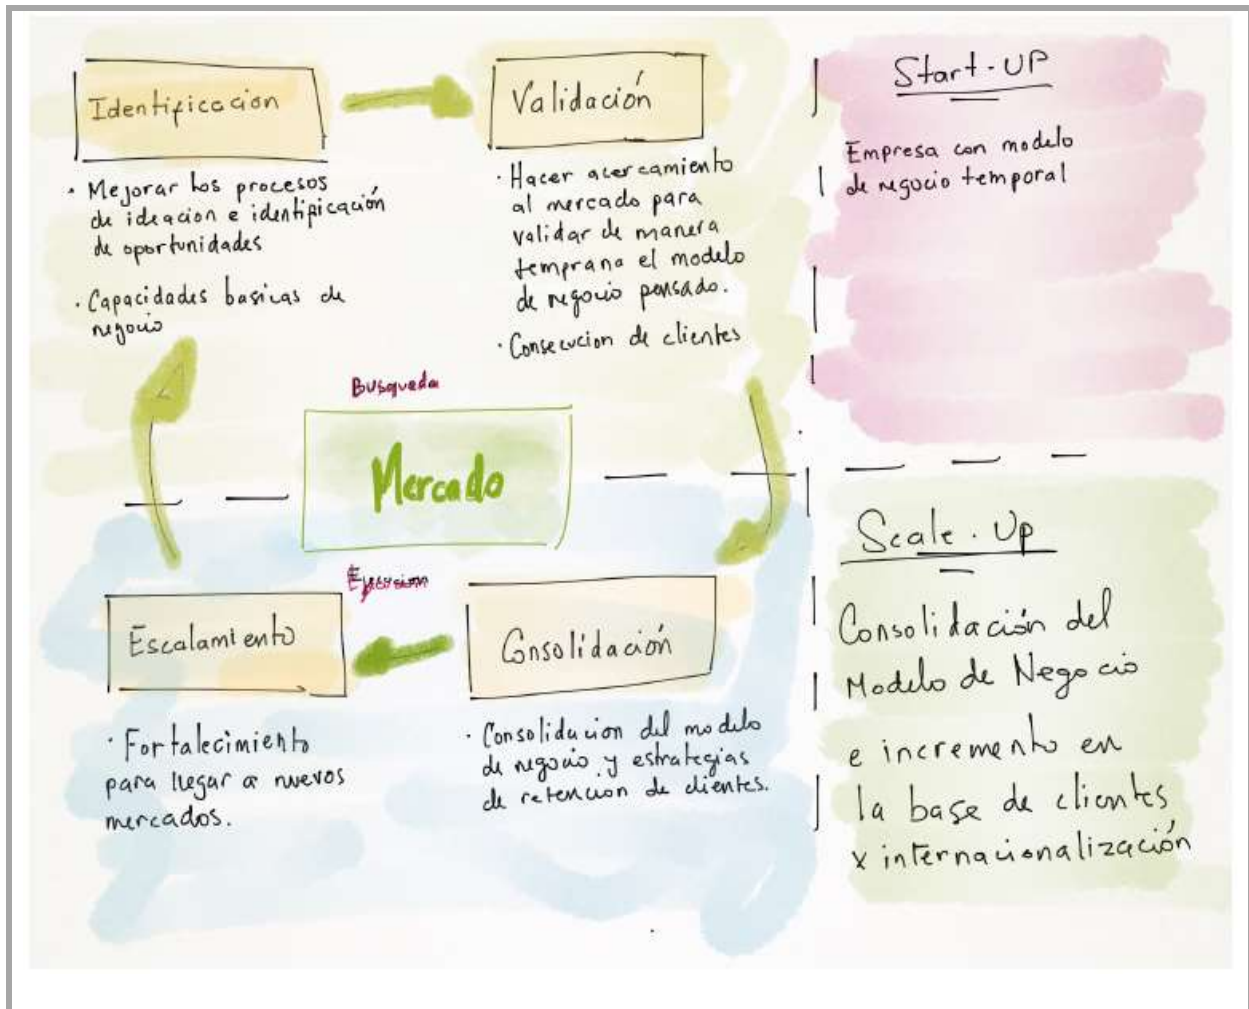 Identificacion
· Mejorar los procesos
de ideacion e identificación
de oportunidades
· Capacidades basicas de
negocio
Validación
· Hacer acercamiento
al mercado para
validar de manera
temprana el modelo
de negocio pensado.
· Consecucion de clientes
Start-UP
Empresa con modelo
de negocio temporal
Busqueda
Mercado
Ejecucion
Escalamiento
· Fortalecimiento
para llegar a nuevos
mercados.
Consolidación
· Consolidacion del modelo
de negocio y estrategias
de retencion de clientes.
Scale-Up
Consolidación del
Modelo de Negocio
e incremento en
la base de clientes
x internacionalización